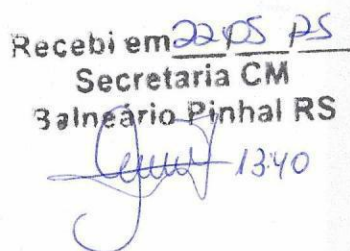 Recebi em 22/05/25
Secretaria CM
Balneário Pinhal RS
13:40